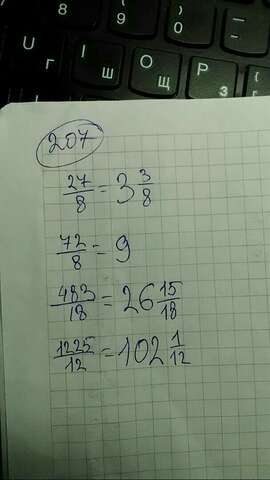 8 9 0
U Г I Ш O Щ P З
207
27/8 = 3 3/8
72/8 = 9
483/18 = 26 15/18
1225/12 = 102 1/12